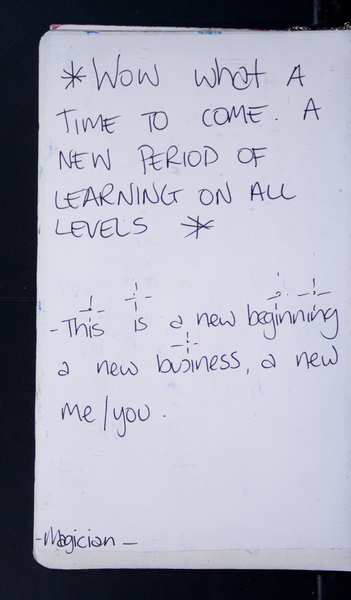 * WOW what A
TIME TO COME. A
NEW PERIOD OF
LEARNING ON ALL
LEVELS *
- This is a new beginning
a new business, a new
me/you.
- Magician -